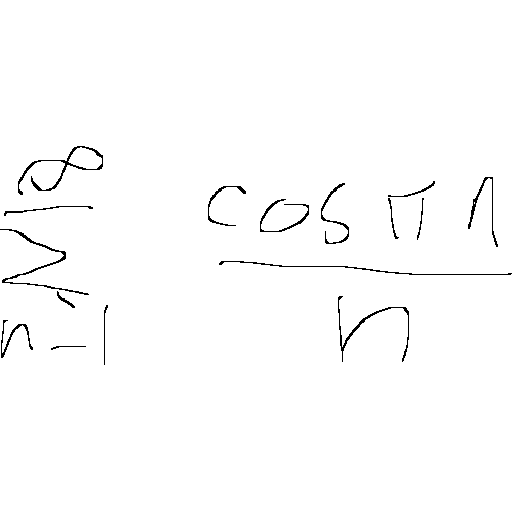 \sum_{n=1}^{\infty} \frac{\cos \pi n}{n}